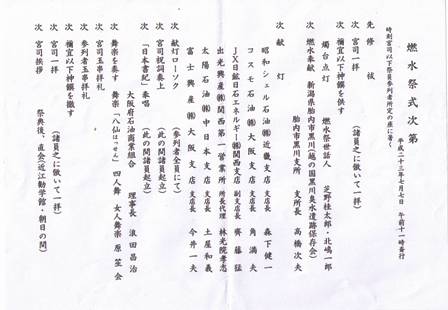 燃水祭式次第
平成二十三年七月七日 午前十一時斎行
時刻宮司以下祭員参列者所定の座に著く
先 修祓
次 宮司一拝 (諸員之に倣いて一拝)
次 禰宜以下神饌を供す
燭台点灯 燃水祭世話人 芝野桂太郎・北嶋一郎
次 燃水奉献 新潟県胎内市黒川(越の国黒川臭水遺跡保存会)
胎内市黒川支所 支所長 高橋次夫
次 献灯
昭和シェル石油㈱近畿支店 支店長 森下健一
コスモ石油㈱大阪支店 支店長 角満夫
JX日鉱日石エネルギー㈱関西支店 副支店長 齊藤猛
出光興産㈱関西第一営業所 所長代理 林光院孝志
太陽石油㈱中日本支店 支店長 土屋和義
富士興産㈱大阪支店 支店長 今井一夫
次 献灯ローソク (参列者全員にて)
次 宮司祝詞奏上 (此の間諸員起立)
次 「日本書紀」奉唱 (此の間諸員起立)
大阪府石油商業組合 理事長 浪田昌治
次 舞楽を奏す 舞楽「八仙はっせん」四人舞 女人舞楽 原笙会
次 宮司玉串拝礼
次 参列者玉串拝礼
次 禰宜以下神饌を撤す
次 宮司一拝 (諸員之に倣いて一拝)
次 宮司挨拶
祭典後、直会(近江勧学館・朝日の間)